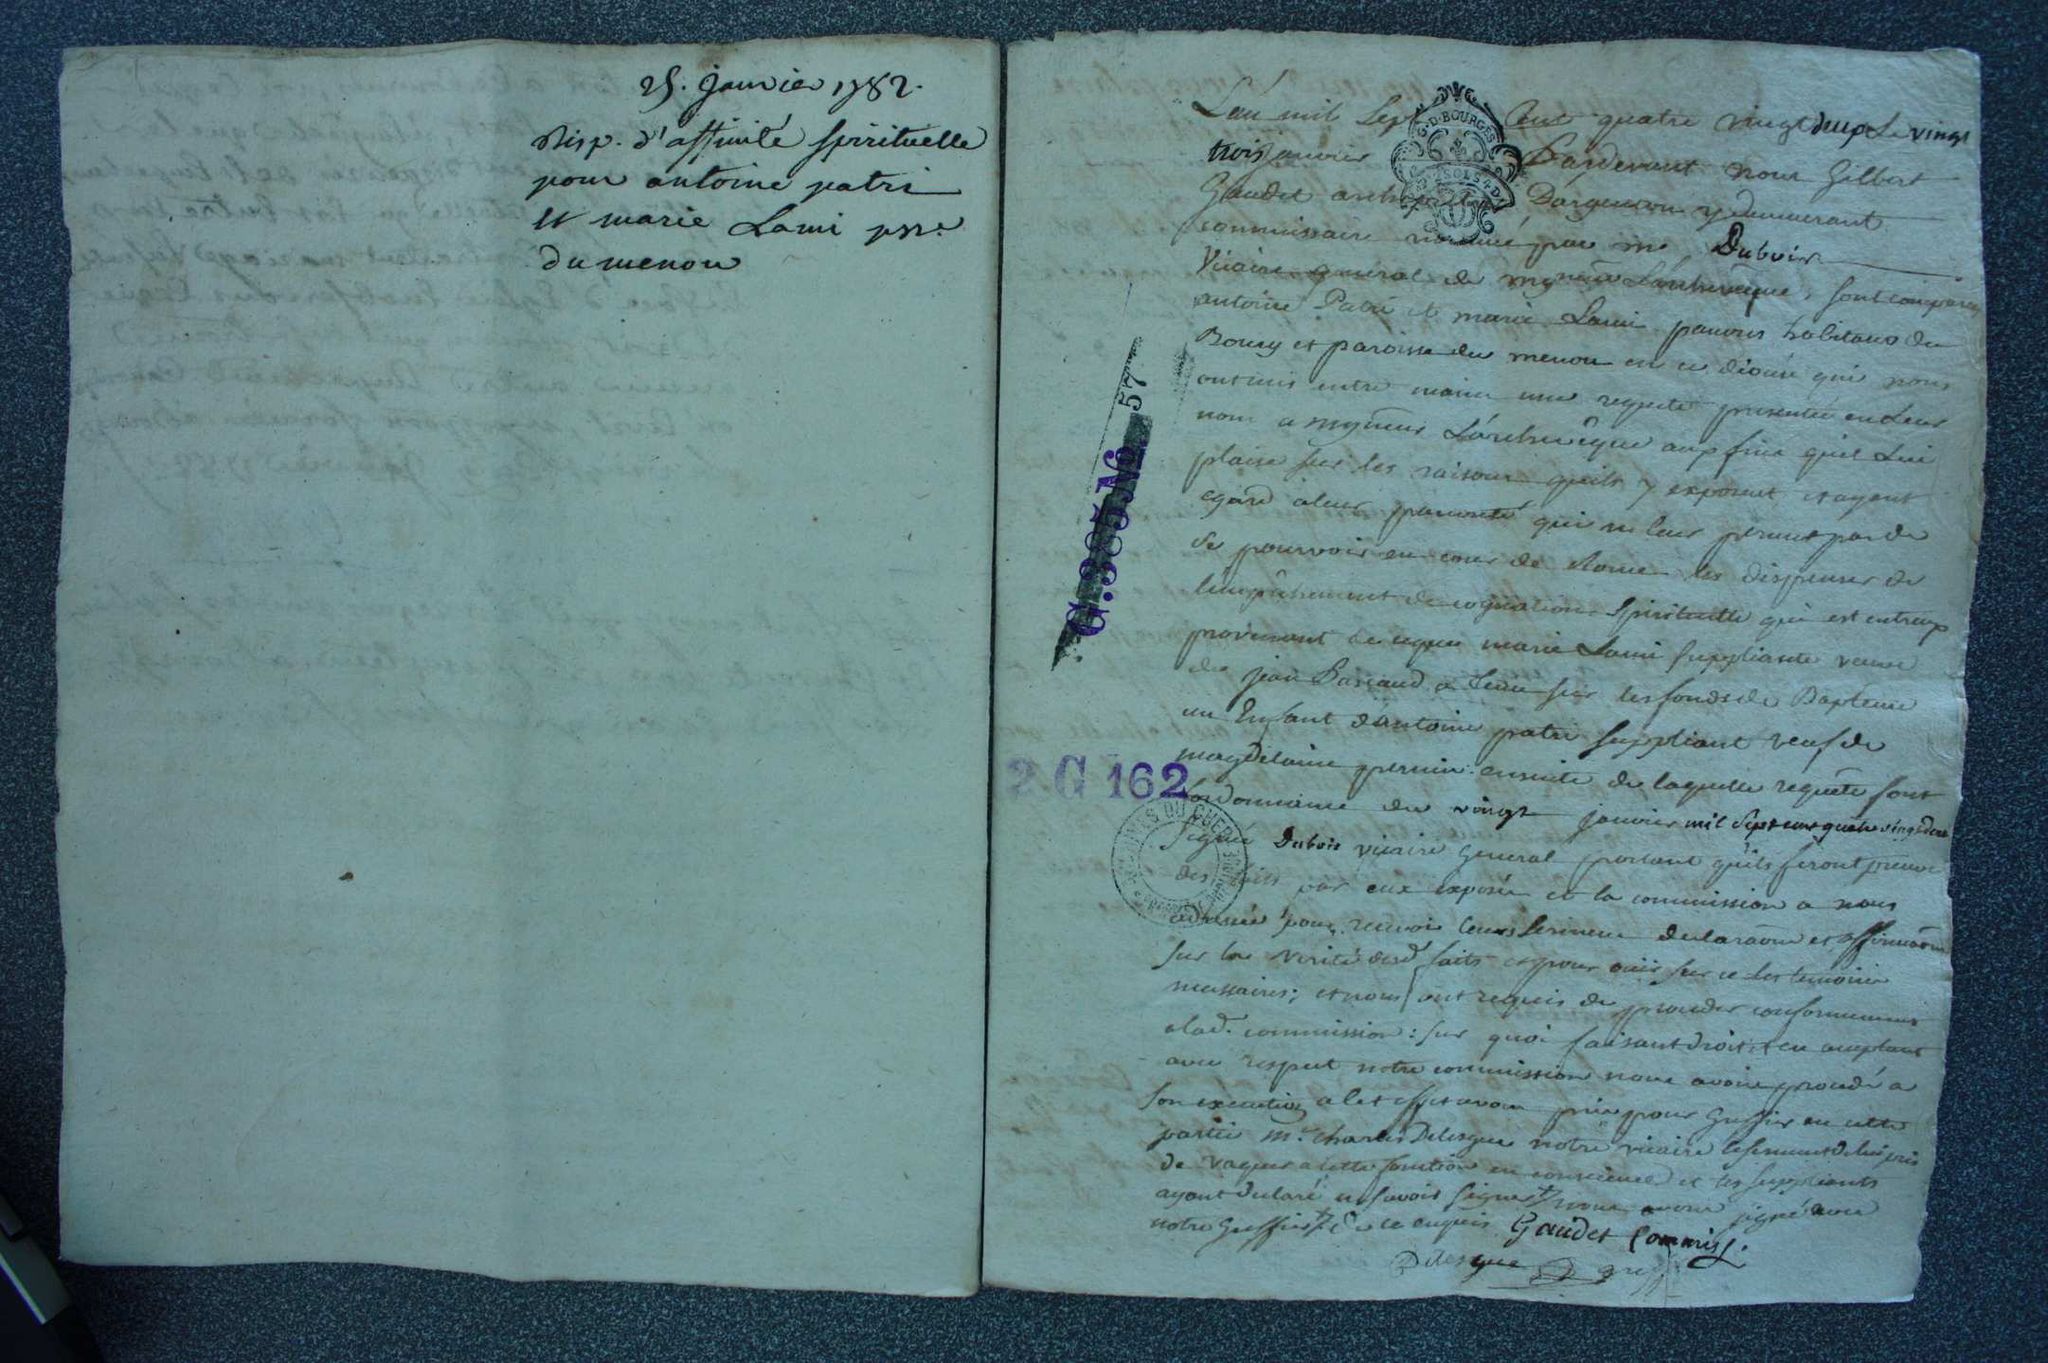 25. janvier 1782.
Disp. d'affinité spirituelle
pour antoine patri
et marie Lami psse.
du menou
L'an mil Sept Cent quatre vingt deux Le vingt
trois janvier Pardevant nous Gilbert
Gaudet archiprêtre D'argenton y demeurant
commissaire nommé par mr Dubois
Vicaire general de mgneur L'archevêque, sont comparus
antoine Patri et marie Lami pauvres habitans du
Bourg et paroisse du menou en ce diocése qui nous
ont mis entre mains une requete presentée en Leur
nom a mgneur L'archevêque aux fins qu'il Lui
plaise sur les raisons qu'ils y exposent et ayant
egard a leur pauvreté qui ne leur permet pas de
se pourvoir en cour de Rome les dispenser de
l'empêchement de cognation spirituelle qui est entreux
provenant de ce que marie Lami suppliante veuve
de jean a tenu sur les fonds de Baptême
un Enfant d'antoine patri suppliant veuf de
magdelaine perrin. ensuite de laquelle requête sont
L'ordonnance du vingt janvier mil sept cent quatre vingt deux
signée Dubois vicaire General portant qu'ils feront preuve
des faits par eux exposés et la commission a nous
adressée pour recevoir leurs serment declaraon et affirmaon
sur la verité desd. faits et pour ouir sur ce les temoins
necessaires; et nous ont requis de proceder conformement
a lad. commission: sur quoi faisant droit et en acceptant
avec respect notre commission nous avons procedé a
son execution a cet effet avons pris pour Greffier en cette
partie mr. charles Delesque notre vicaire le serment de lui pris
de vaquer a cette fonction en conscience et les suppliants
ayant declaré ne savoir signer nous avons signé avec
notre Greffier de ce enquis Gaudet Commiss.
Delesque greff
G. D. BOURGES
2 SOLS 4 D.
G. 385 No 57
2 G 162
ARCHIVES DU CHER